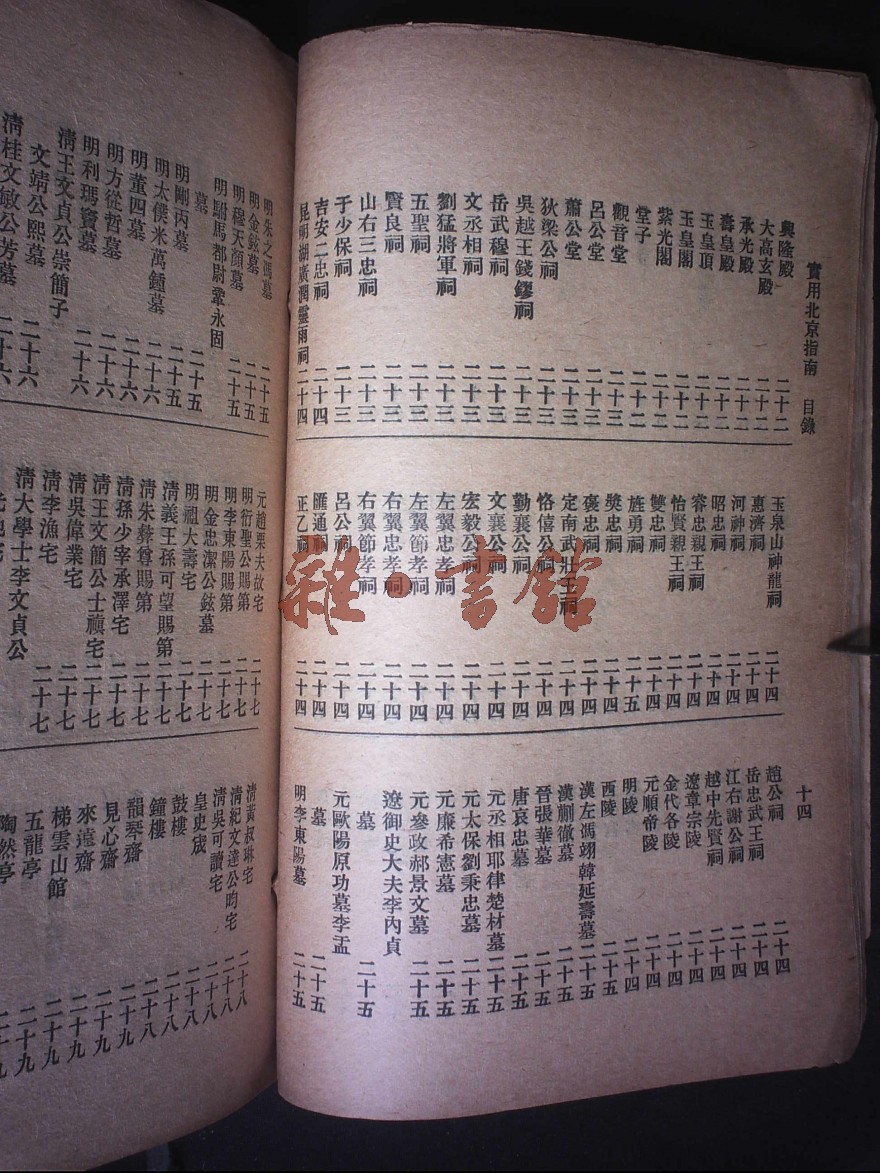 實用北京指南 目錄
十四
興隆殿 二十二
大高玄殿 二十二
承光殿 二十二
壽皇殿 二十二
玉皇頂 二十二
玉皇閣 二十二
紫光閣 二十二
堂子 二十二
觀音堂 二十三
呂公堂 二十三
蕭公堂 二十三
狄梁公祠 二十三
吳越王錢鏐祠 二十三
岳武穆祠 二十三
文丞相祠 二十三
劉猛將軍祠 二十三
五聖祠 二十三
賢良祠 二十三
山右三忠祠 二十三
于少保祠 二十三
吉安二忠祠 二十四
昆明湖廣潤靈雨祠 二十四
玉泉山神龍祠 二十四
惠濟祠 二十四
河神祠 二十四
昭忠祠 二十四
睿忠親王祠 二十四
怡賢親王祠 二十四
雙忠祠 二十四
旌勇祠 二十五
獎忠祠 二十四
褒忠祠 二十四
定南武壯王祠 二十四
恪僖公祠 二十四
勤襄公祠 二十四
宏毅公祠 二十四
文襄公祠 二十四
左翼忠孝祠 二十四
左翼節孝祠 二十四
右翼忠孝祠 二十四
右翼節孝祠 二十四
呂公祠 二十四
匯通祠 二十四
正乙祠 二十四
趙公祠 二十四
岳忠武王祠 二十四
江右謝公祠 二十四
越中先賢祠 二十四
遼章宗陵 二十四
金代各陵 二十四
元順帝陵 二十四
明陵 二十四
西陵 二十五
漢左馮翊韓延壽墓 二十五
漢蒯徹墓 二十五
晉張華墓 二十五
唐哀忠墓 二十五
元丞相耶律楚材墓 二十五
元太保劉秉忠墓 二十五
元廉希憲墓 二十五
元參政郝景文墓 二十五
遼御史大夫李內貞
墓 二十五
元歐陽原功墓李孟
墓 二十五
明李東陽墓 二十五
明朱之馮墓 二十五
明金鉉墓 二十五
明穆天顏墓 二十五
明駙馬都尉鞏永固
墓 二十五
明剛丙墓 二十五
明太僕米萬鍾墓 二十六
明董四墓 二十六
明方從哲墓 二十六
明利瑪竇墓 二十六
清王文貞公崇簡子
文靖公熙墓 二十六
清桂文敏公芳墓 二十六
元趙栗夫故宅 二十七
明衍聖公賜第 二十七
明李東陽賜第 二十七
明金忠潔公鉉墓 二十七
明祖大壽宅 二十七
清義王孫可望賜第 二十七
清朱彝尊賜第 二十七
清孫少宰承澤宅 二十七
清王文簡公士禛宅 二十七
清吳偉業宅 二十七
清李漁宅 二十七
清大學士李文貞公
清黃叔琳宅 二十八
清紀文達公昀宅 二十八
清吳可讀宅 二十八
皇史宬 二十八
鼓樓 二十八
鐘樓 二十八
韻琴齋 二十九
見心齋 二十九
來遠齋 二十九
梯雲山館 二十九
五龍亭 二十九
陶然亭 二十九
雜·書館